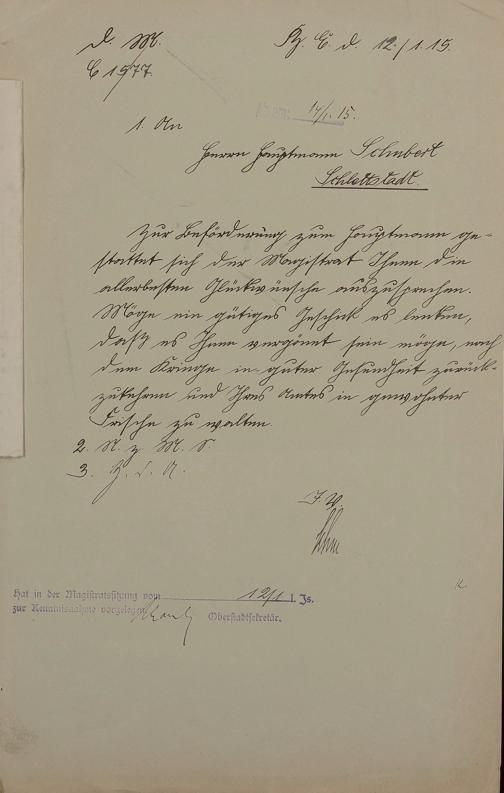 D. M.
C 1977
Fz. E. d. 12./1.15.
17/1.15.
1. An
Herrn Hauptmann Schubert
Schlettstadt.
Zur Beförderung zum Hauptmann ge-
stattet sich der Magistrat Ihnen die
allerbesten Glückwünsche auszusprechen.
Möge ein gütiges Geschick es lenken,
daß es Ihnen vergönnt sein möge, nach
dem Kriege in guter Gesundheit zurück-
zukehren und Ihres Amtes in gewohnter
Frische zu walten.
2. N. z. M. S.
3. Z. d. A.
I. V.
Hat in der Magistratssitzung vom 12/1 l. Js.
zur Kenntnisnahme vorgelegen.
Oberstadtsekretär.